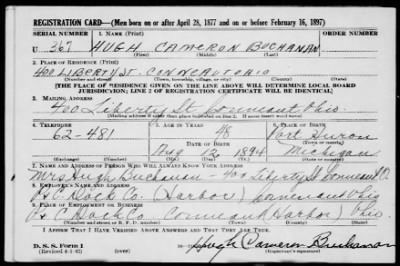 REGISTRATION CARD—(Men born on or after April 28, 1877 and on or before February 16, 1897)
SERIAL NUMBER 1. NAME (Print)
U 367 HUGH CAMERON BUCHANAN
(First) (Middle) (Last)
2. PLACE OF RESIDENCE (Print)
400 LIBERTY ST. CONNEAUT OHIO
(Number and street) (Town, township, village, or city) (County) (State)
[THE PLACE OF RESIDENCE GIVEN ON THE LINE ABOVE WILL DETERMINE LOCAL BOARD
JURISDICTION; LINE 2 OF REGISTRATION CERTIFICATE WILL BE IDENTICAL]
3. MAILING ADDRESS
400 Liberty St Conneaut Ohio
4. TELEPHONE 5. AGE IN YEARS 6. PLACE OF BIRTH
62-481 48 Port Huron
DATE OF BIRTH
Aug 12 1894 Michigan
7. NAME AND ADDRESS OF PERSON WHO WILL ALWAYS KNOW YOUR ADDRESS
Mrs Hugh Buchanan - 400 Liberty St Conneaut O.
8. EMPLOYER'S NAME AND ADDRESS
Dock Co. (Harbor) Conneaut Ohio
9. PLACE OF EMPLOYMENT OR BUSINESS
Dock Co Conneaut (Harbor) Ohio.
I AFFIRM THAT I HAVE VERIFIED ABOVE ANSWERS AND THAT THEY ARE TRUE.
D. S. S. Form 1
(Revised 4-1-42) Hugh Cameron Buchanan